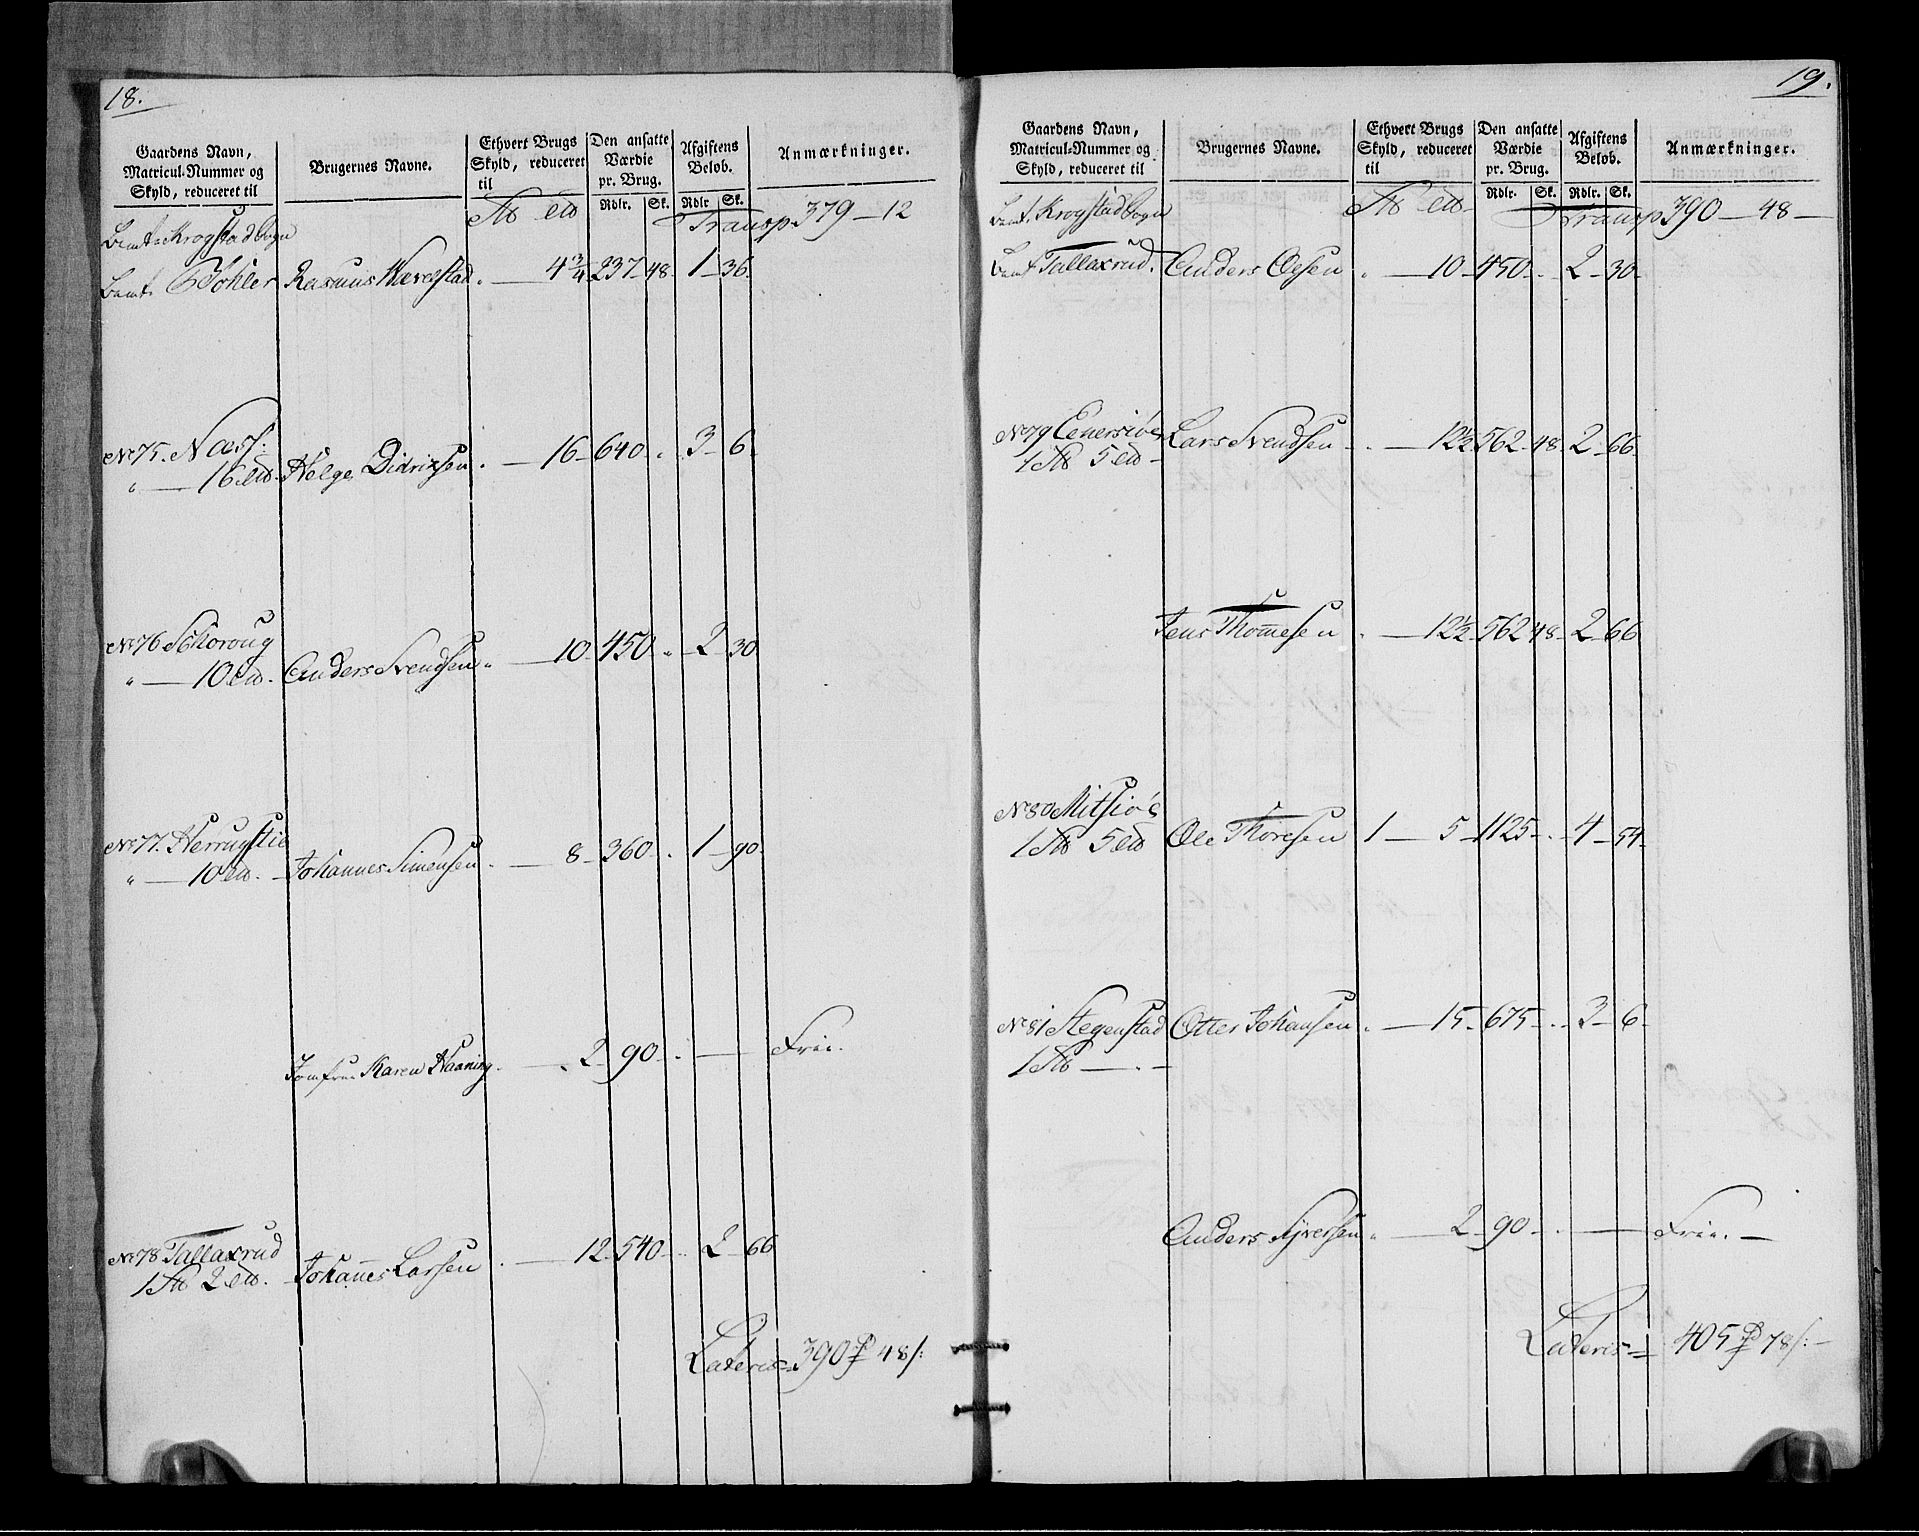 18.
Gaardens Navn, Matricul-Nummer og Skyld, reduceret til | Brugernes Navne. | Ethvert Brugs Skyld, reduceret til | Den ansatte Værdie pr. Brug. | Afgiftens Beløb. | Anmærkninger.
Rdlr. | Sk. | Rdlr | Sk.
Krogstad Sogn | Transp 379 — 12
Bøhler | Rasmus | 4 3/4 | 237 | 48 | 1 | 36
No 75. Næss: | Helge Didrixsen | 16 | 640 | . | 3 | 6
" — 16
No 76 Schoroug | Anders Svendsen | 10 | 450 | . | 2 | 30
" — 10
No 77. Herrugstie | Johannes Simensen | 8 | 360 | . | 1 | 90
" — 10
Jomfrue Karen Haaning | 2 | 90 | . | — | Frie.
No 78 Tallaxrud | Johannes Larsen | 12 | 540 | . | 2 | 66
1 2
Lateris = 390 48
19.
Gaardens Navn, Matricul-Nummer og Skyld, reduceret til | Brugernes Navne. | Ethvert Brugs Skyld, reduceret til | Den ansatte Værdie pr. Brug. | Afgiftens Beløb. | Anmærkninger.
Rdlr. | Sk. | Rdlr. | Sk.
Krogstad Sogn | Transp 390 — 48 —
Tallaxrud. | Anders Olsen | 10 | 450 | . | 2 | 30
No 79 | Lars Svendsen | 12 1/2 | 562 | 48 | 2 | 66
1 5
Jens Thommesen | 12 1/2 | 562 | 48 | 2 | 66
No 80 Mitsiøe | Ole Thoresen | 1 — 5 | 1125 | . | 4 | 54
1 5
No 81 Stegenstad | Otter Johansen | 15 | 675 | . | 3 | 6
1
Anders Syversen | 2 | 90 | . | — | Frie. —
Lateris = 405 78